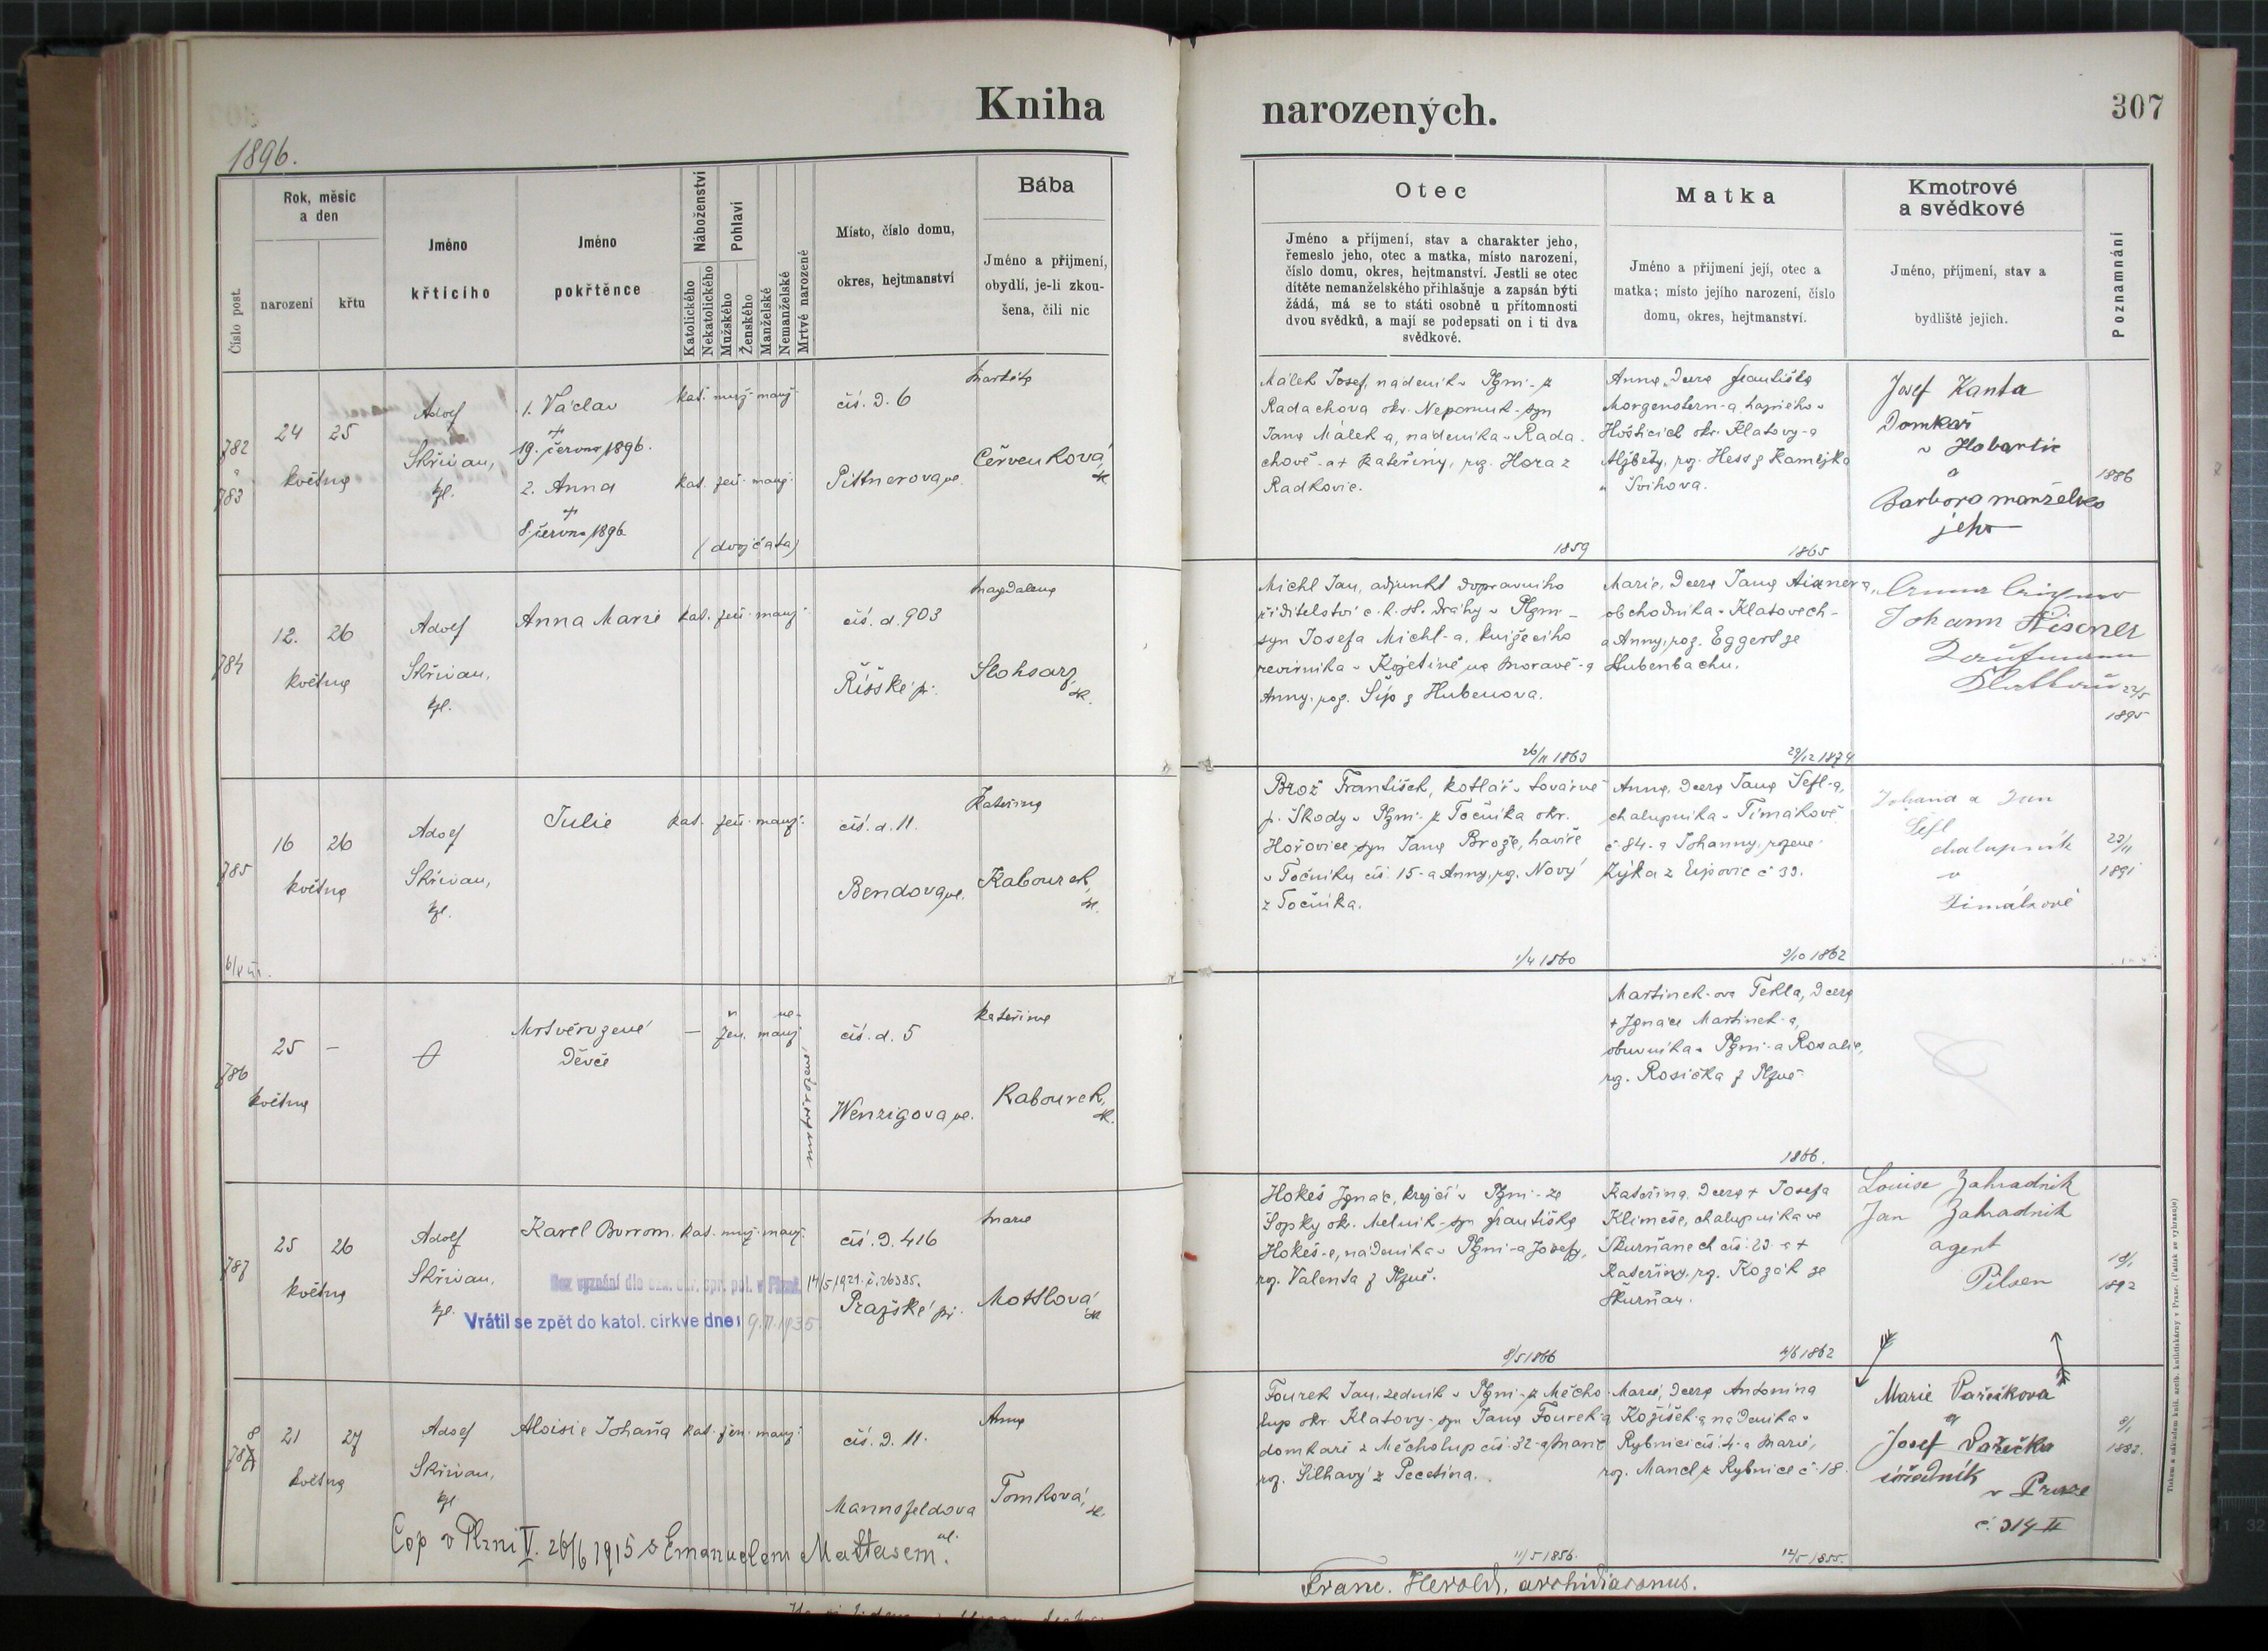 Kniha narozených.
307
1896.
Číslo post.
Rok, měsíc
a den
narození
křtu
Jméno
křtícího
Jméno
pokřtěnce
Náboženství
Katolického
Nekatolického
Pohlaví
Mužského
Ženského
Manželské
Nemanželské
Mrtvé narozené
Místo, číslo domu,
okres, hejtmanství
Bába
Jméno a příjmení,
obydlí, je-li zkou-
šena, čili nic
Otec
Jméno a příjmení, stav a charakter jeho,
řemeslo jeho, otec a matka, místo narození,
číslo domu, okres, hejtmanství. Jestli se otec
dítěte nemanželského přihlašuje a zapsán býti
žádá, má se to státi osobně u přítomnosti
dvou svědků, a mají se podepsati on i ti dva
svědkové.
Matka
Jméno a příjmení její, otec a
matka; místo jejího narození, číslo
domu, okres, hejtmanství.
Kmotrové
a svědkové
Jméno, příjmení, stav a
bydliště jejich.
Poznamnání
782
a
783
24 25
května
Adolf
Skřivan,
kpl.
1. Václav
+
19. června 1896.
2. Anna
+
8. června 1896
kat. muž. manž.
kat. žen. manž.
(dvojčata)
čís. d. 6
Pittnerova ul.
Markéta
Červenková,
zk.
Málek Josef, nádeník v Plzni - z
Radachova okr. Nepomuk - syn
Jana Málek-a, nádeníka v Rada-
chově - a + Kateřiny, roz. Hora z
Radkovic.
1859
Anna, dcera Františka
Morgenstern-a, hajného v
Hošticích okr. Klatovy - a
Alžběty, roz. Hess z Kamejka
u Švihova.
1865
Josef Kanta
Domkář
v Hobartic
a
Barbora manželka
jeho
1886
784
12. 26
května
Adolf
Skřivan,
kpl.
Anna Marie
kat. žen. manž.
čís. d. 903
Říšské př.
Magdalena
zk.
Michl Jan, adjunkt dopravního
ředitelství c. k. st. dráhy v Plzni -
syn Josefa Michl-a, knížecího
revírníka v Kojetíně na Moravě - a
Anny, roz. Šíp z Hubenova.
26/11 1863
Marie, dcera Jana Aisnera,
obchodníka v Klatovech -
a Anny, roz. Eggert ze
Hubenbachu.
29/12 1874
Johann Aisner
Kaufmann
Klattau
22/5
1895
785
16 26
května
Adolf
Skřivan,
kpl.
Julie
kat. žen. manž.
čís. d. 11.
Bendova ul.
Kateřina
Kabourek,
zk.
Brož František, kotlář v továrně
p. Škody v Plzni - z Točníka okr.
Hořovice - syn Jana Brože, havíře
v Točníku čís. 15 - a Anny, roz. Nový
z Točníka.
1/4 1860
Anna, dcera Jana Šefl-a,
chalupníka v Tímákově
č 84 - a Johanny, rozené
Zýka z Ejpovic č 39.
9/10 1862
Johana a Jan
Šefl
chalupník
v
Timákově
23/11
1891
786
25 —
května
Mrtvěrozené
Děvče
— žen. nemanž.
mrtvěrozené
čís. d. 5
Wenzigova ul.
Kateřina
Kabourek,
zk.
Martínek-ova Tekla, dcera
+ Ignáce Martínek-a,
obuvníka v Plzni - a Rosalie,
roz. Rosička z Plzně.
1866.
787
25 26
května
Adolf
Skřivan,
kpl.
Karel Borrom.
kat. muž. manž.
14/5 1921. č. 26385.
Vrátil se zpět do katol. církve dne: 9.II.1935
čís. d. 416
Pražské př.
Marie
Mottlová
zk
Hokeš Ignác, krejčí v Plzni - ze
Šopky okr. Mělník - syn Františka
Hokeš-e, nádeníka v Plzni - a Josefy,
roz. Valenta z Plzně.
8/5 1866
Kateřina, dcera + Josefa
Klimeše, chalupníka ve
Skurňanech čís. 23 - a +
Kateřiny, roz. Kozák ze
Skurňan.
4/6 1862
Louise Zahradnik
Jan Zahradnik
agent
Pilsen
18/1
1892
788
21 27
května
Adolf
Skřivan,
kpl
Aloisie Johaňa
kat. žen. manž.
čís. d. 11.
Mannsfeldova
ul.
Anna
Tomková,
zk.
Cop v Plzni V. 26/6 1915 s Emanuelem Mattasem.
Fourek Jan, zedník v Plzni - z Měcho-
lup okr. Klatovy - syn Jana Fourek-a
domkaře z Měcholup čís. 32 - a Marie
roz. Šilhavý z Pecetína.
11/5 1856.
Marie, dcera Antonína
Kožíšek-a nádeníka v
Rybnici čís. 4 - a Marie,
roz. Mancl z Rybnice č 18.
12/5 1855.
Marie Pařízkova
a
Josef
úředník
v Praze
č. 314 II
8/1
1882.
Franc. Herold, archidiaconus.